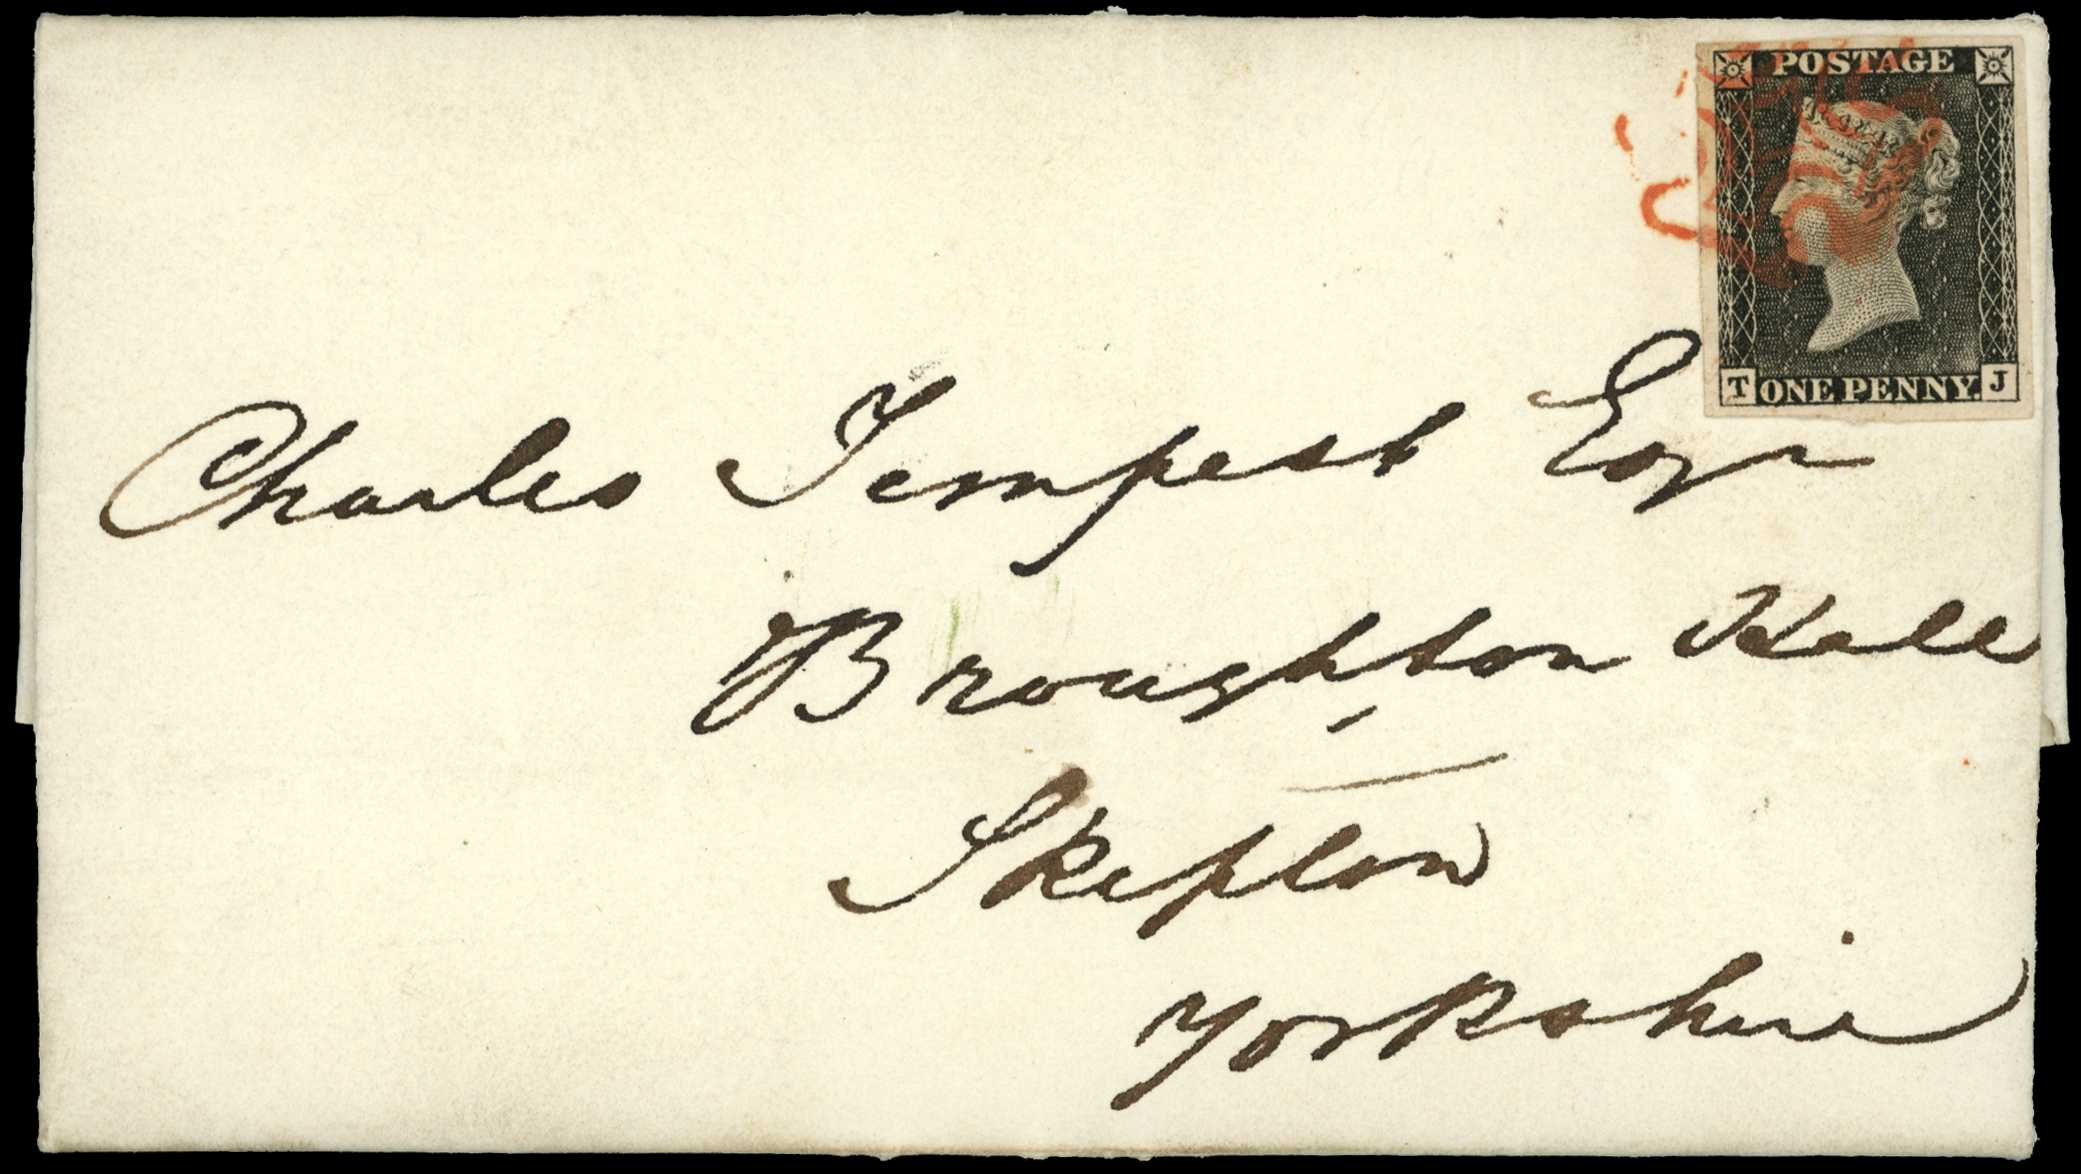 POSTAGE
T ONE PENNY. J
Charles Tempest Esqr
Broughton Hall
Skipton
Yorkshire